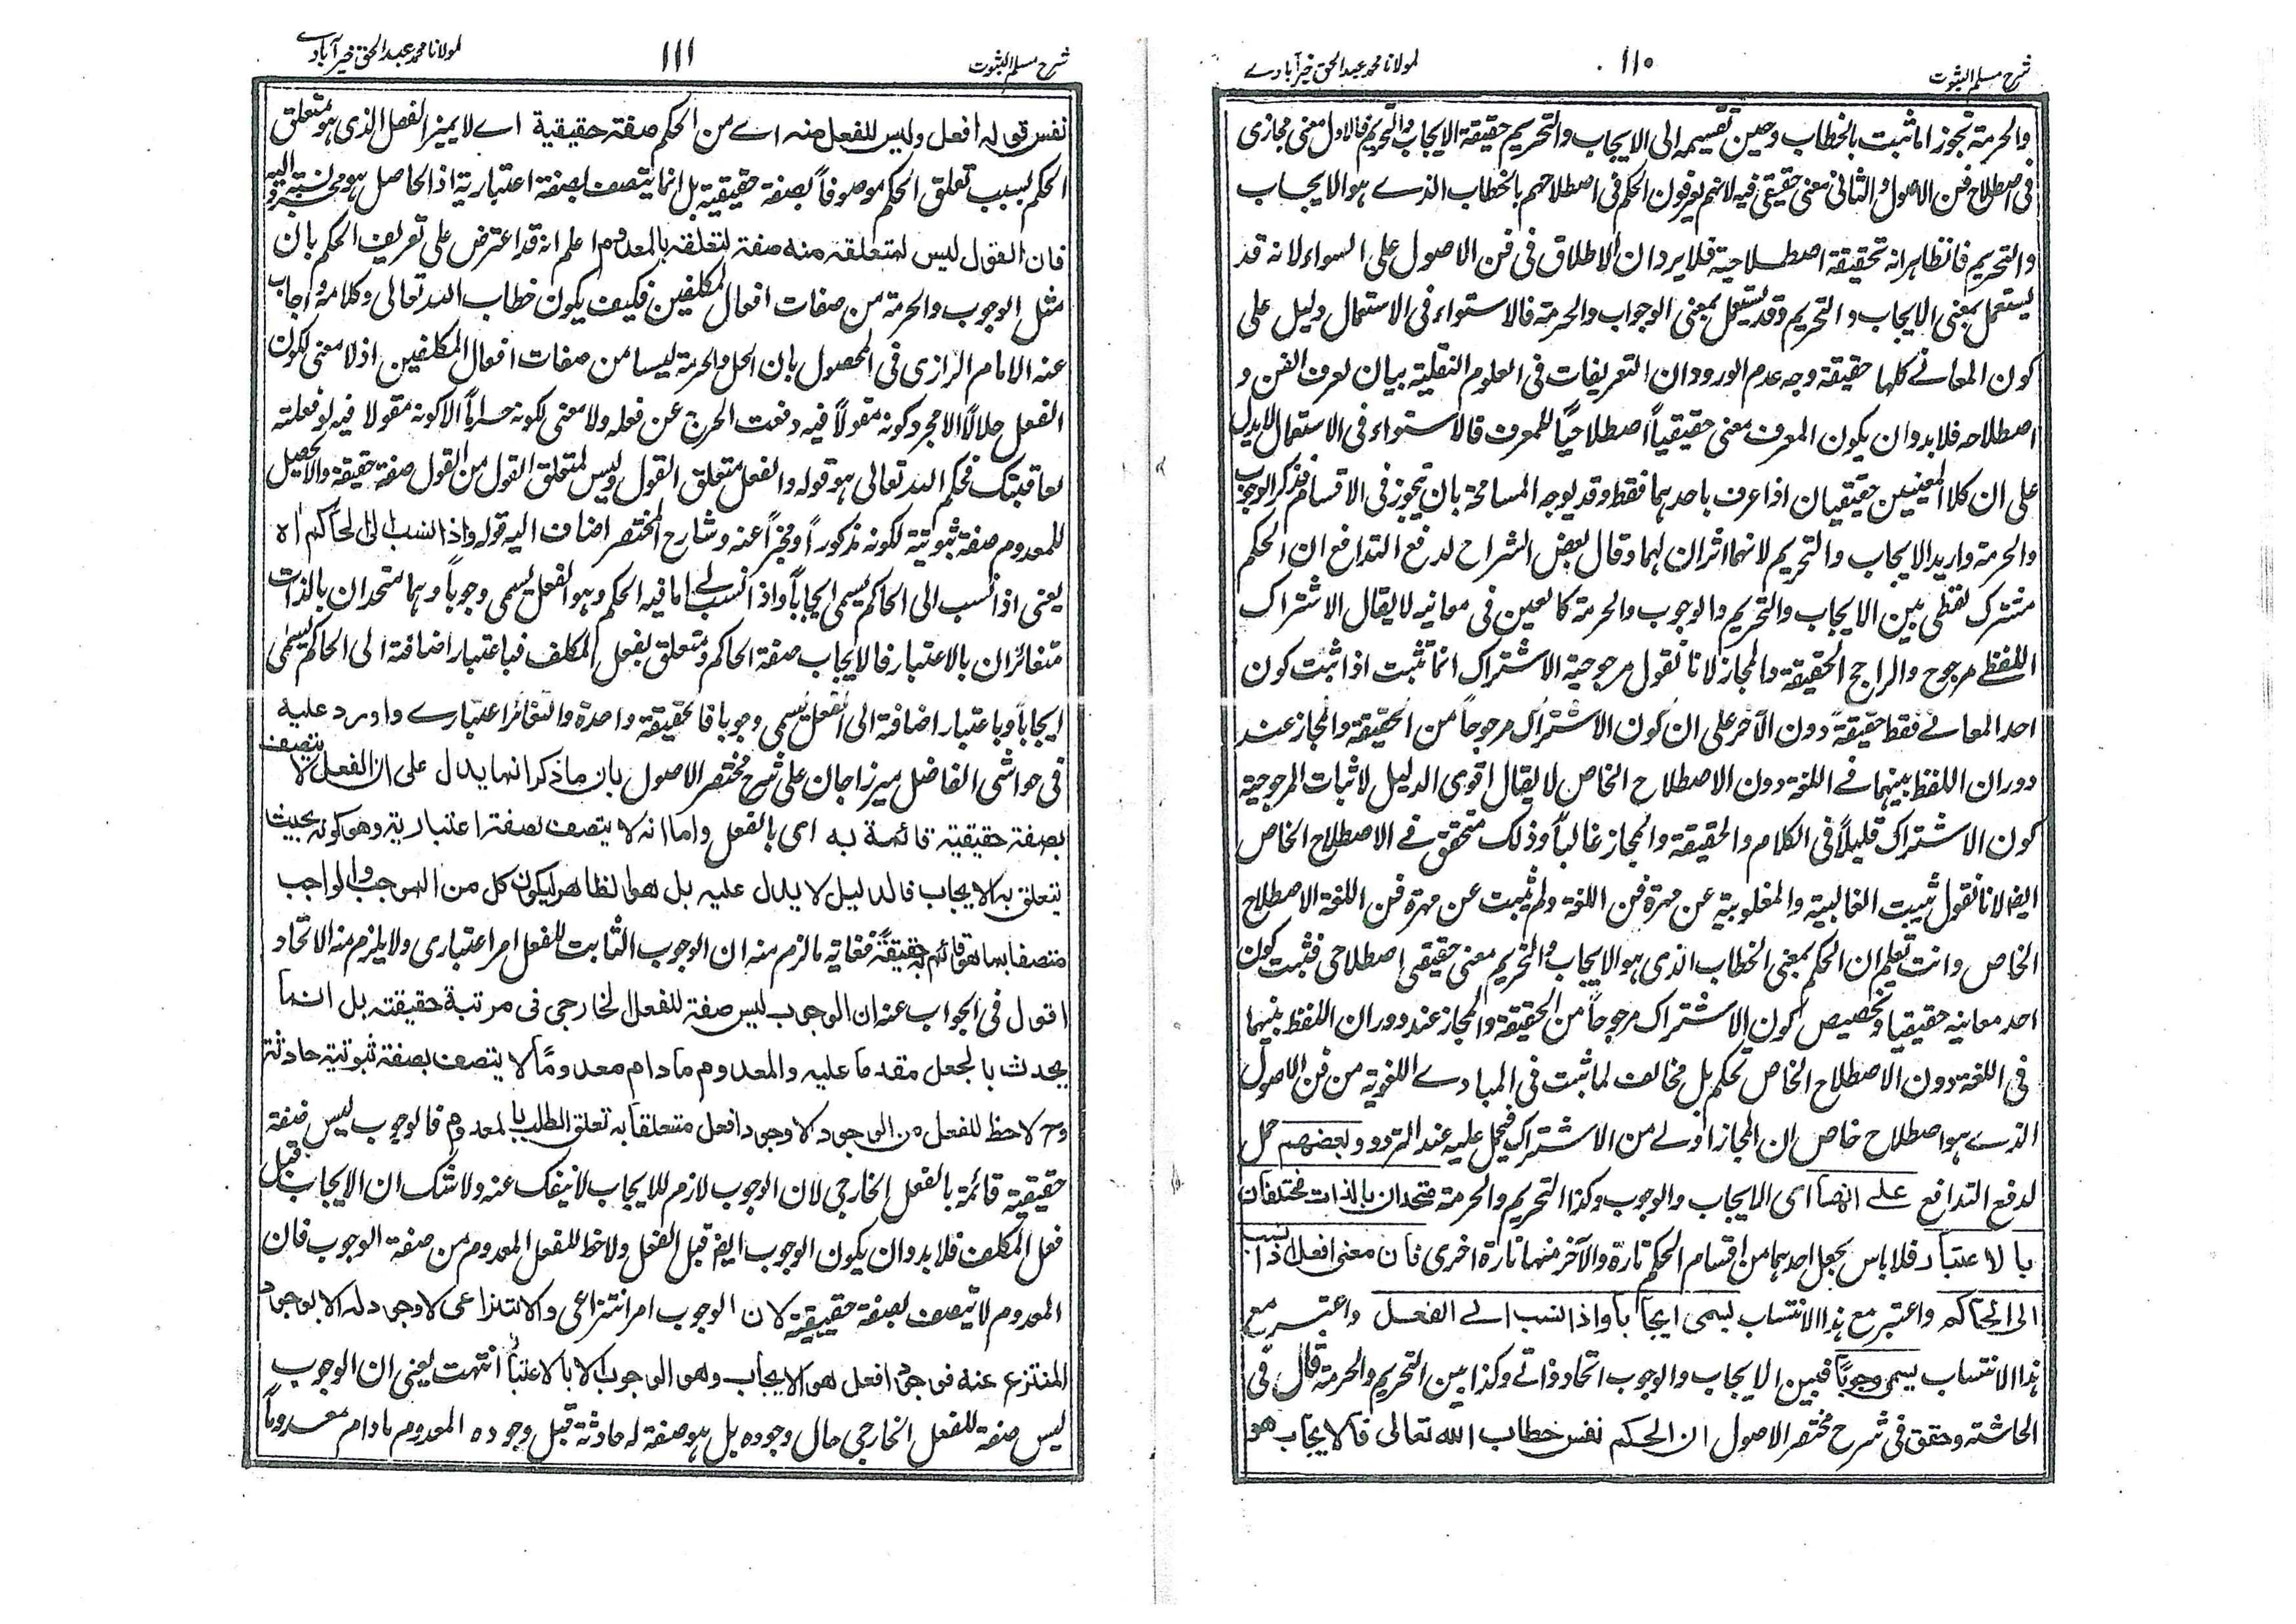 شرح مسلم الثبوت
١١٠
لمولانا محمد عبد الحق خیرآبادے
والحرمة تجوز اما ثبت بالخطاب وحين تقسيمه الى الايجاب والتحريم حقيقة الايجاب والتحريم فالاول معنى مجازى
فى اصطلاح فن الاصول والثانى معنى حقيقى فيه لانهم يعرفون الحكم فى اصطلاحهم بالخطاب الذے هو الايجاب
والتحريم فالظاهر انه تحقيقة اصطلاحية فلا يرد ان الاطلاق فى فن الاصول على السواء لانه قد
يستعمل بمعنى الايجاب والتحريم وقد يستعمل بمعنى الوجواب والحرمة فالاستواء فى الاستعمال دليل على
كون المعانے كلها حقيقة وجه عدم الورود ان التعريفات فى العلوم النقلية بيان لعرف الفن و
اصطلاحه فلا بد وان يكون المعرف معنى حقيقياً اصطلاحيًا للمعرف فالاستواء فى الاستعمال لا يدل
على ان كلا المعنيين حقيقيان اذا عرف باحدهما فقط وقد يوجه المسامحة بان يتجوز فى الاقسام فذكر الوجوب
والحرمة واريد الايجاب والتحريم لانهما اثران لهما وقال بعض الشراح لدفع التدافع ان الحكم
مشترك لفظى بين الايجاب والتحريم والوجوب والحرمة كالعين فى معانيه لا يقال الاشتراك
اللفظے مرجوح والراجح الحقيقة والمجاز لانا نقول مرجوحية الاشتراك انما تثبت اذا ثبت كون
احد المعانے فقط حقيقةً دون الآخر على ان كون الاشتراك مرجوحاً من الحقيقة والمجاز عند
دوران اللفظ بينهما فے اللغة دون الاصطلاح الخاص لا يقال اقوى الدليل لاثبات المرجوحية
كون الاشتراك قليلاً فى الكلام والحقيقة والمجاز غالباً وذلك متحقق فے الاصطلاح الخاص
ايضا لانا نقول ثبيت الغالبية والمغلوبية عن مهرة فن اللغة ولم يثبت عن مهرة فن اللغة الاصطلاح
الخاص وانت تعلم ان الحكم بمعنى الخطاب الذى هو الايجاب والتحريم معنى حقيقى اصطلاحى فثبت كون
احد معانيه حقيقيا وتخصيص كون الاشتراك مرجوحاً من الحقيقة والمجاز عند دوران اللفظ بينهما
فى اللغة دون الاصطلاح الخاص تحكم بل مخالف لما ثبت فى المبادے اللغوية من فن الاصول
الذے هو اصطلاح خاص ان المجاز اولے من الاشتراك فيحمل عليه عند التردد وبعضهم حمل
لدفع التدافع علے انهما اى الايجاب والوجوب وكذا التحريم والحرمة متحدان بالذات مختلفان
بالاعتبار فلا باس بجعل احدهما من اقسام الحكم تارة والآخر منها تارة اخرى فان معنى افعل اذا نسب
الى الحاكم واعتبر مع هذا الانتساب يسمى ايجاباً واذا نسب الے الفعل واعتبر مع
هذا الانتساب يسمى وجوبًا فبين الايجاب والوجوب اتحاد ذاتے وكذا بين التحريم والحرمة قال فى
الحاشته وحقق فى شرح مختصر الاصول ان الحكم نفس خطاب الله تعالى فالايجاب هو
شرح مسلم الثبوت
١١١
لمولانا محمد عبد الحق خیرآبادے
نفس قوله افعل وليس للفعل منه اے من الحكم صفة حقيقية اے لا يميز الفعل الذى هو متعلق
الحكم بسبب تعلق الحكم موصوفاً بصفة حقيقية بل انما يتصف بصفة اعتبارية اذ الحاصل هو مجرد نسبة اليه
فان القول ليس لمتعلقه منه صفة لتعلقه بالمعدوم اعلم انه قد اعترض على تعريف الحكم بان
مثل الوجوب والحرمة من صفات افعال المكلفين فكيف يكون خطاب الله تعالى وكلامه واجاب
عنه الامام الرازى فى المحصول بان الحل والحرمة ليسا من صفات افعال المكلفين اذ لا معنى لكون
الفعل حلالاً الا مجرد كونه مقولاً فيه دفعت الحرج عن فعله ولا معنى لكونه حراماً الا كونه مقولا فيه لو فعلته
لعاقبتك فحكم الله تعالى هو قوله والفعل متعلق القول وليس لمتعلق القول من القول صفة حقيقة والا لحصل
للمعدوم صفة ثبوتية لكونه مذكوراً ومخبراً عنه وشارح المختصر اضاف اليه قوله واذا نسب الى الحاكم اه
يعنى اذا نسب الى الحاكم يسمى ايجاباً واذا نسب الے ما فيه الحكم وهو الفعل يسمى وجوباً وهما متحدان بالذات
متغائران بالاعتبار فالايجاب صفة الحاكم ومتعلق بفعل المكلف فباعتبار اضافته الى الحاكم يسمى
ايجاباً وباعتبار اضافة الى الفعل يسمى وجوبا فالحقيقة واحدة والتغائر اعتبارے واورد عليه
فى حواشى الفاضل ميرزا جان على شرح مختصر الاصول بان ما ذكر انما يدل على ان الفعل لا يتصف
بصفة حقيقية قائمة به اى بالفعل واما انه لا يتصف بصفة اعتبارية وهو كونه بحيث
يتعلق به الايجاب فالدليل لا يدل عليه بل هو الظاهر ليكون كل من الموجب والواجب
متصفا بما هو قائم به حقيقةً فغاية ما لزم منه ان الوجوب الثابت للفعل امر اعتبارى ولا يلزم منه الاتحاد
اقول فى الجواب عنه ان الوجوب ليس صفة للفعل الخارجى فى مرتبة حقيقته بل انما
يحدث بالجعل مقدما عليه والمعدوم ما دام معدومًا لا يتصف بصفة ثبوتية حادثة
وح لا حظ للفعل من الوجود الا وجود افعل متعلقا به تعلق الطلب بالمعدوم فالوجوب ليس صفة
حقيقية قائمة بالفعل الخارجى لان الوجوب لازم للايجاب لا ينفك عنه ولا شك ان الايجاب قبل
فعل المكلف فلا بد وان يكون الوجوب ايضا قبل الفعل ولا حظ للفعل المعدوم من صفة الوجوب فان
المعدوم لا يتصف بصفة حقيقية لان الوجوب امر انتزاعى والانتزاعى لا وجود له الا بوجود
المنتزع عنه فوجود افعل هو الايجاب وهو الوجوب الا بالاعتبار انتهت يعنى ان الوجوب
ليس صفة للفعل الخارجى حال وجوده بل هو صفة له حادثة قبل وجوده المعدوم ما دام معدوماً